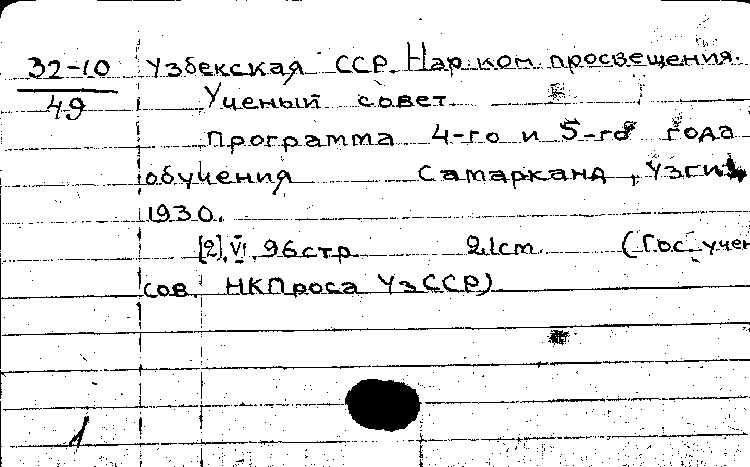 32-10
49
Узбекская ССР. Нар. ком. просвещения.
Ученый совет.
Программа 4-го и 5-го года
обучения Самарканд, Узгиз,
1930.
[2], VI, 96 стр. 21 cm. (Гос. учен
сов. НКПроса УзССР)
1